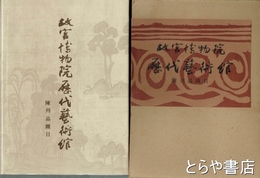 故宮博物院
歷代藝術館
陳列品圖目
故宮博物院
歷代藝術館
とらや書店